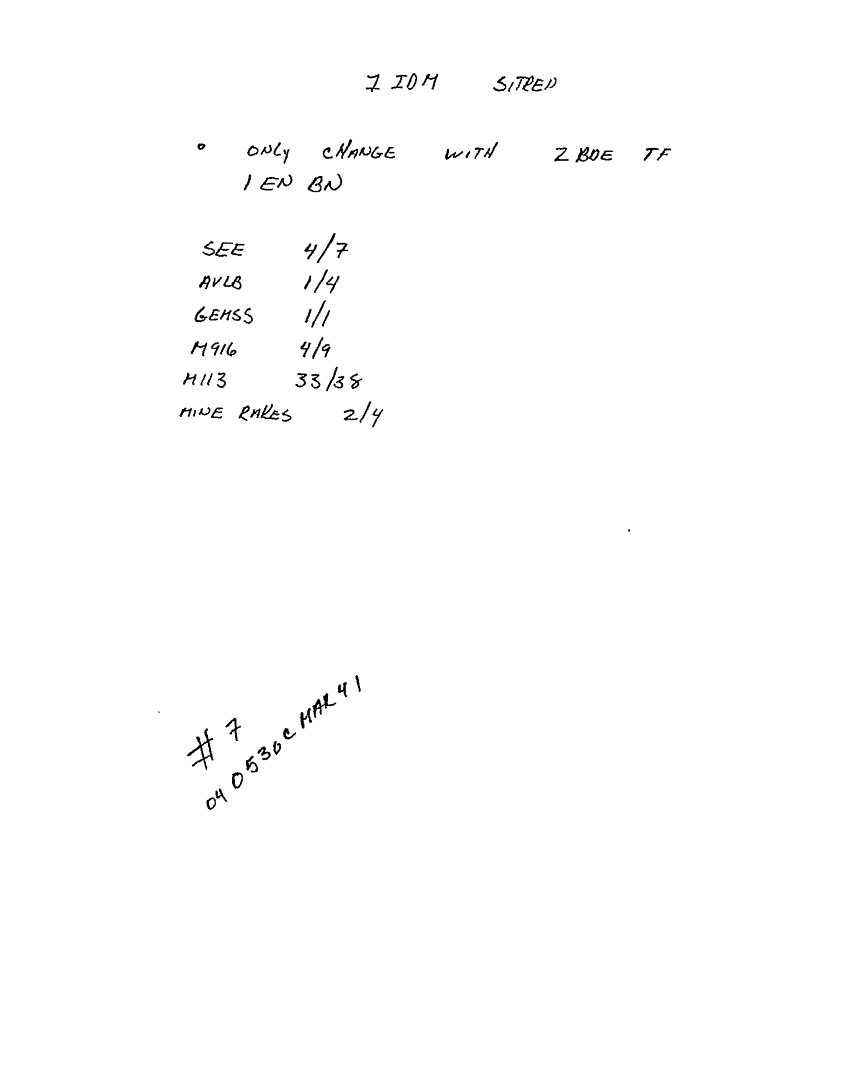 1 IDM SITREP
• ONLY CHANGE WITH 2 BDE TF
1 EN BN
SEE 4/7
AVLB 1/4
GEMSS 1/1
M916 4/9
M113 33/38
MINE RAKES 2/4
# 7
040530C MAR 41